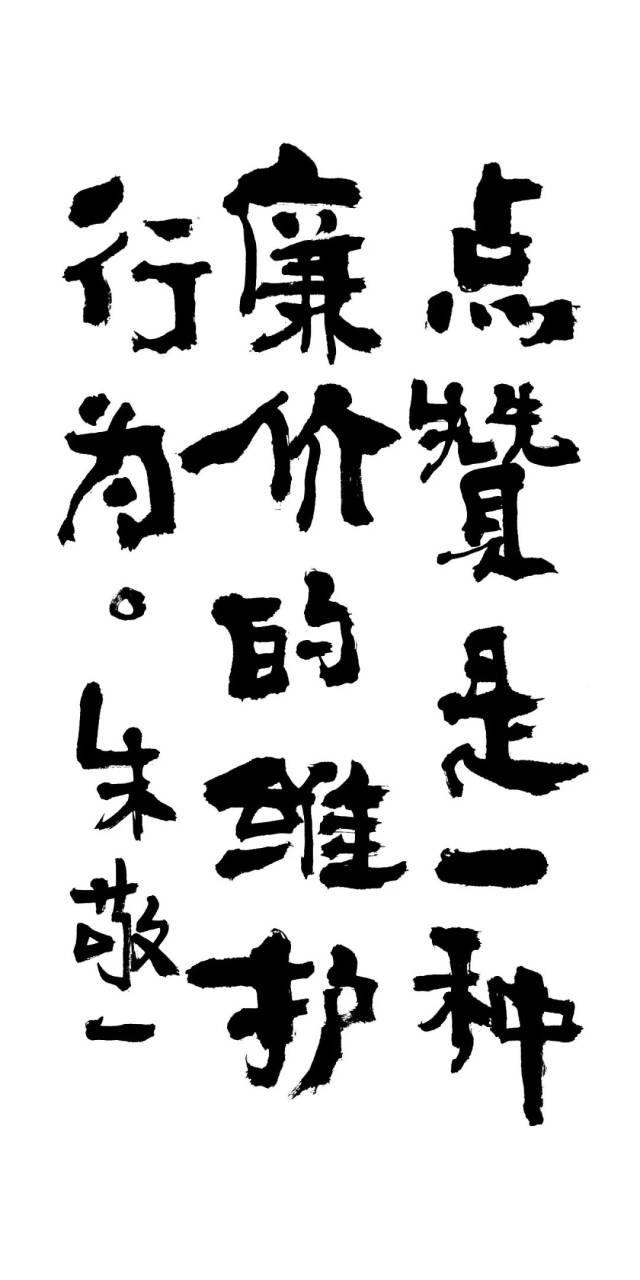 点赞是一种
廉价的维护
行为。朱敬一